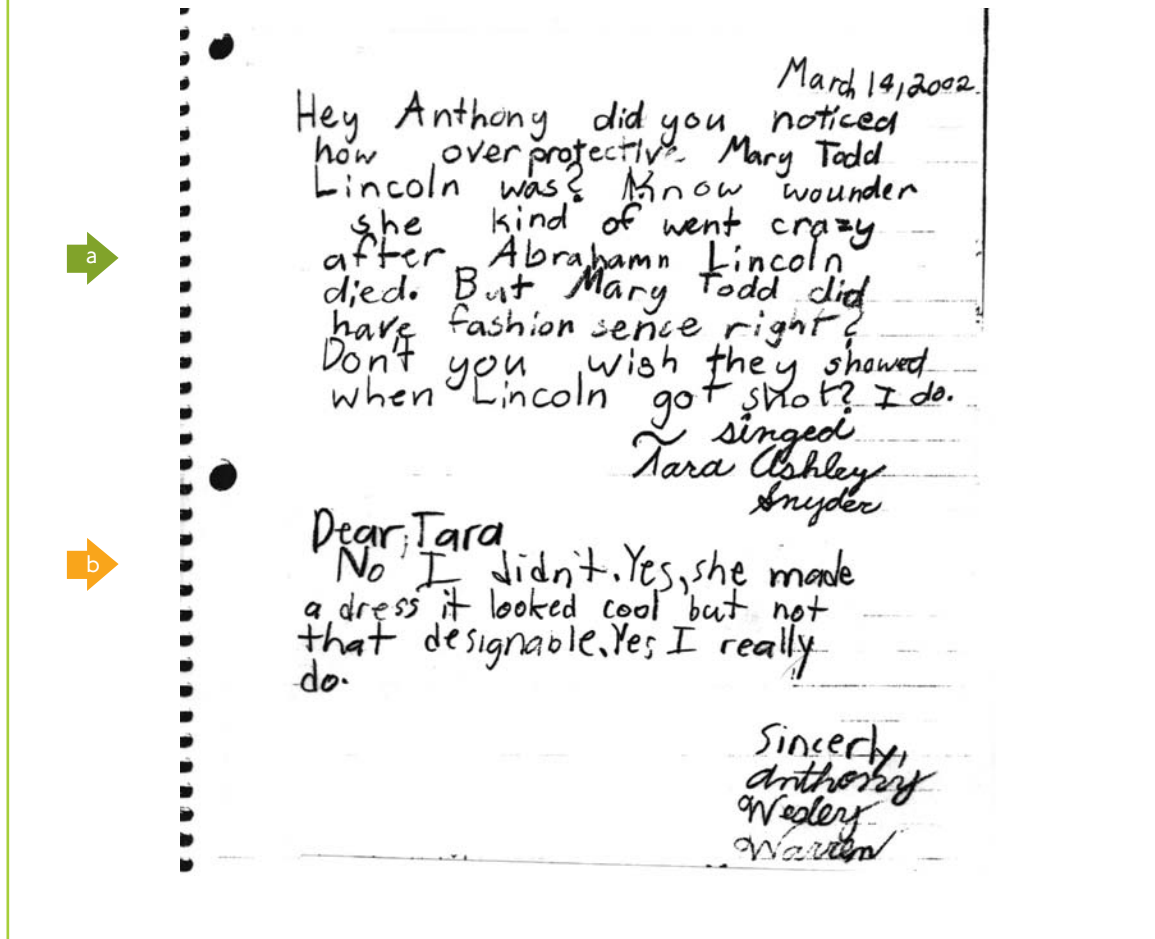 March 14, 2002
Hey Anthony did you noticed
how overprotective Mary Todd
Lincoln was? Know wounder
she kind of went crazy
a
after Abrahamn Lincoln
died. But Mary Todd did
have fashion sence right?
Don't you wish they showed
when Lincoln got shot? I do.
~ singed
Tara Ashley
Snyder
Dear, Tara
b
No I didn't. Yes, she made
a dress it looked cool but not
that designable. Yes I really
do.
Sincerly,
Anthony
Wesley
Warren